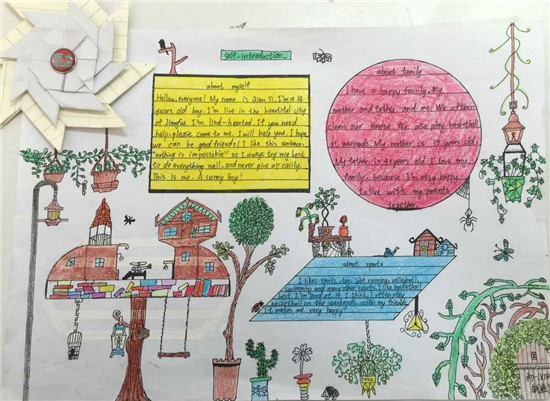 self-introduction
about myself
Hello, everyone! My name is Qian Yi. I'm a 10
years old boy. I'm live in the beautiful city
of I'm kind-hearted. If you need
help, please come to me. I will help you! I hope
we can be good friends! I like this sentence:
"nothing is impossible" so I always try my best
to do everything well, and never give up easily.
This is me. A sunny boy!
about family
I have a happy family, my
mother and father, and me. We often
clean our house. We also play basketball
at weekends. My mother is 39 years old.
My father is 41 years old. I love my
family, because I'm very happy
to live with my parents
together.
about sports
I likes sports, too, like running, volleyball,
swimming and many other sports. I like basketball
best. I'm good at it I think. I often play
basketball on the weekends with my friends.
It makes me very happy!